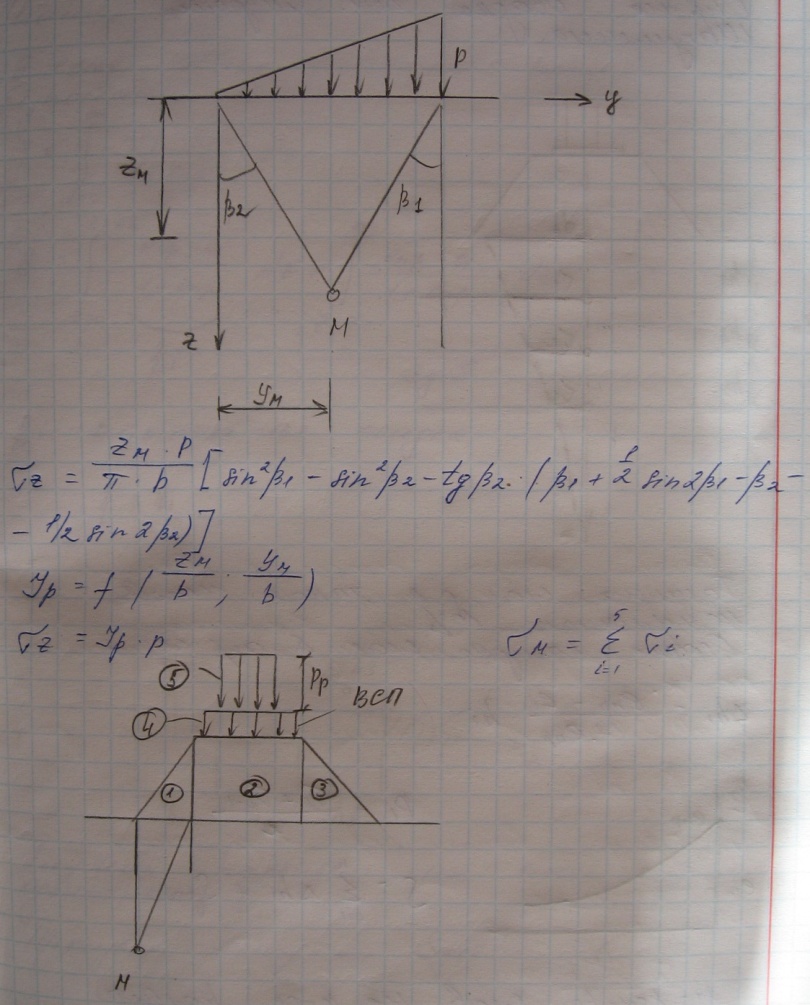 P
y
Zм
β2
β1
z
M
yм
σz = zм · P / π · b [sin²β1 − sin²β2 − tgβ2 · (β1 + 1/2 sin2β1 − β2 −
− 1/2 sin 2β2)]
Jp = f (zм/b ; yм/b)
σz = Jp · p
σм = Σ σi
5
i=1
5
Pp
ВСП
4
1
2
3
M